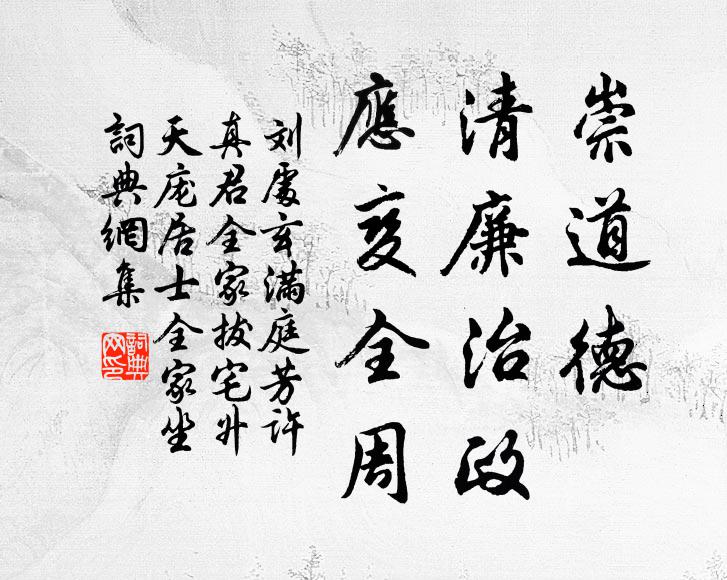 崇道德
清廉治政
應变全周
刘處玄滿庭芳许
真君全家拔宅外
天庞居士全家坐
詞典網集
詞典网印